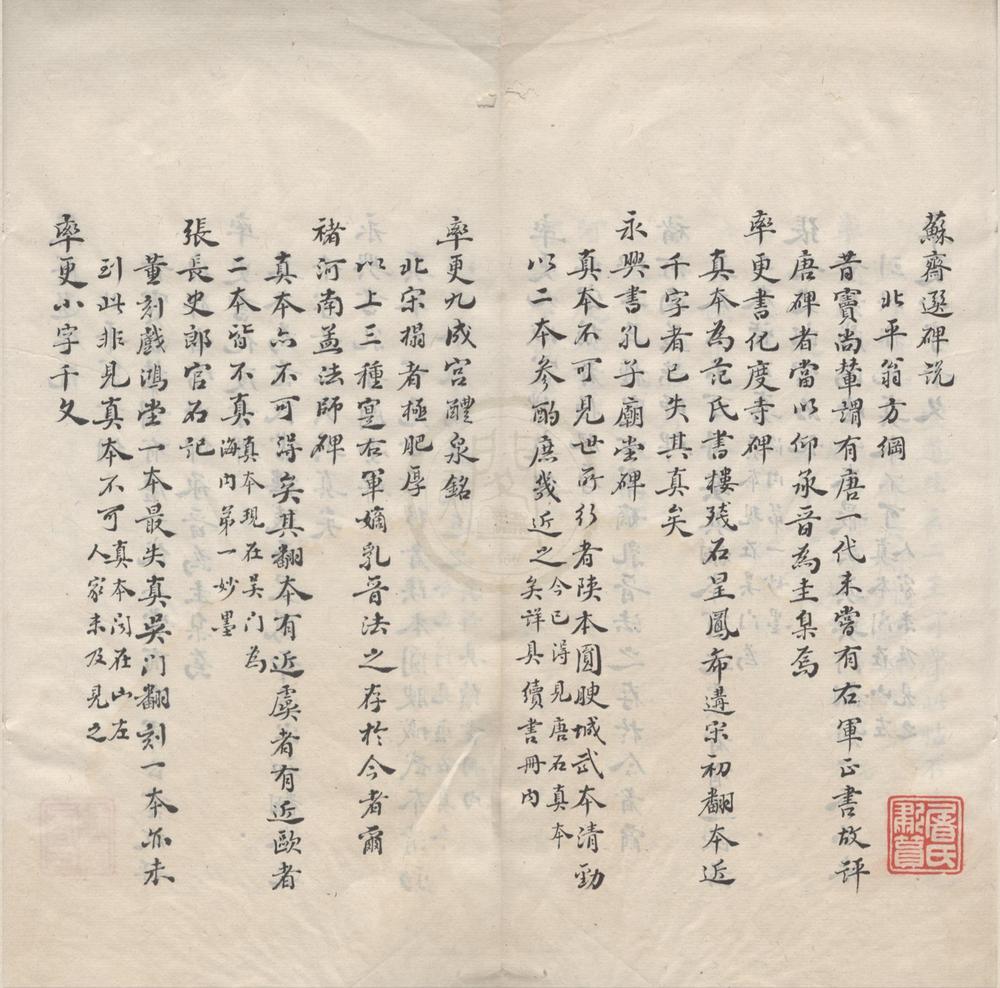 蘇齋選碑說
北平翁方綱
昔竇尚輦謂有唐一代未嘗有右軍正書故評
唐碑者當以仰承晉為圭臬焉
率更書化度寺碑
真本為范氏書樓殘石呈鳳希遘宋初翻本近
千字者已失其真矣
永興書孔子廟堂碑
真本不可見世所行者陝本圓腴城武本清勁
以二本參酌庶幾近之今已得見唐石真本
矣詳具續書冊內
率更九成宮醴泉銘
北宋搨者極肥厚
以上三種寔右軍嫡乳晉法之存於今者爾
褚河南孟法師碑
真本亦不可得矣其翻本有近虞者有近歐者
二本皆不真真本現在吳門為
海內第一妙墨
張長史郎官石記
董刻戲鴻堂一本最失真吳門翻刻一本亦未
到此非見真本不可真本閟在山左
人家未及見之
率更小字千文